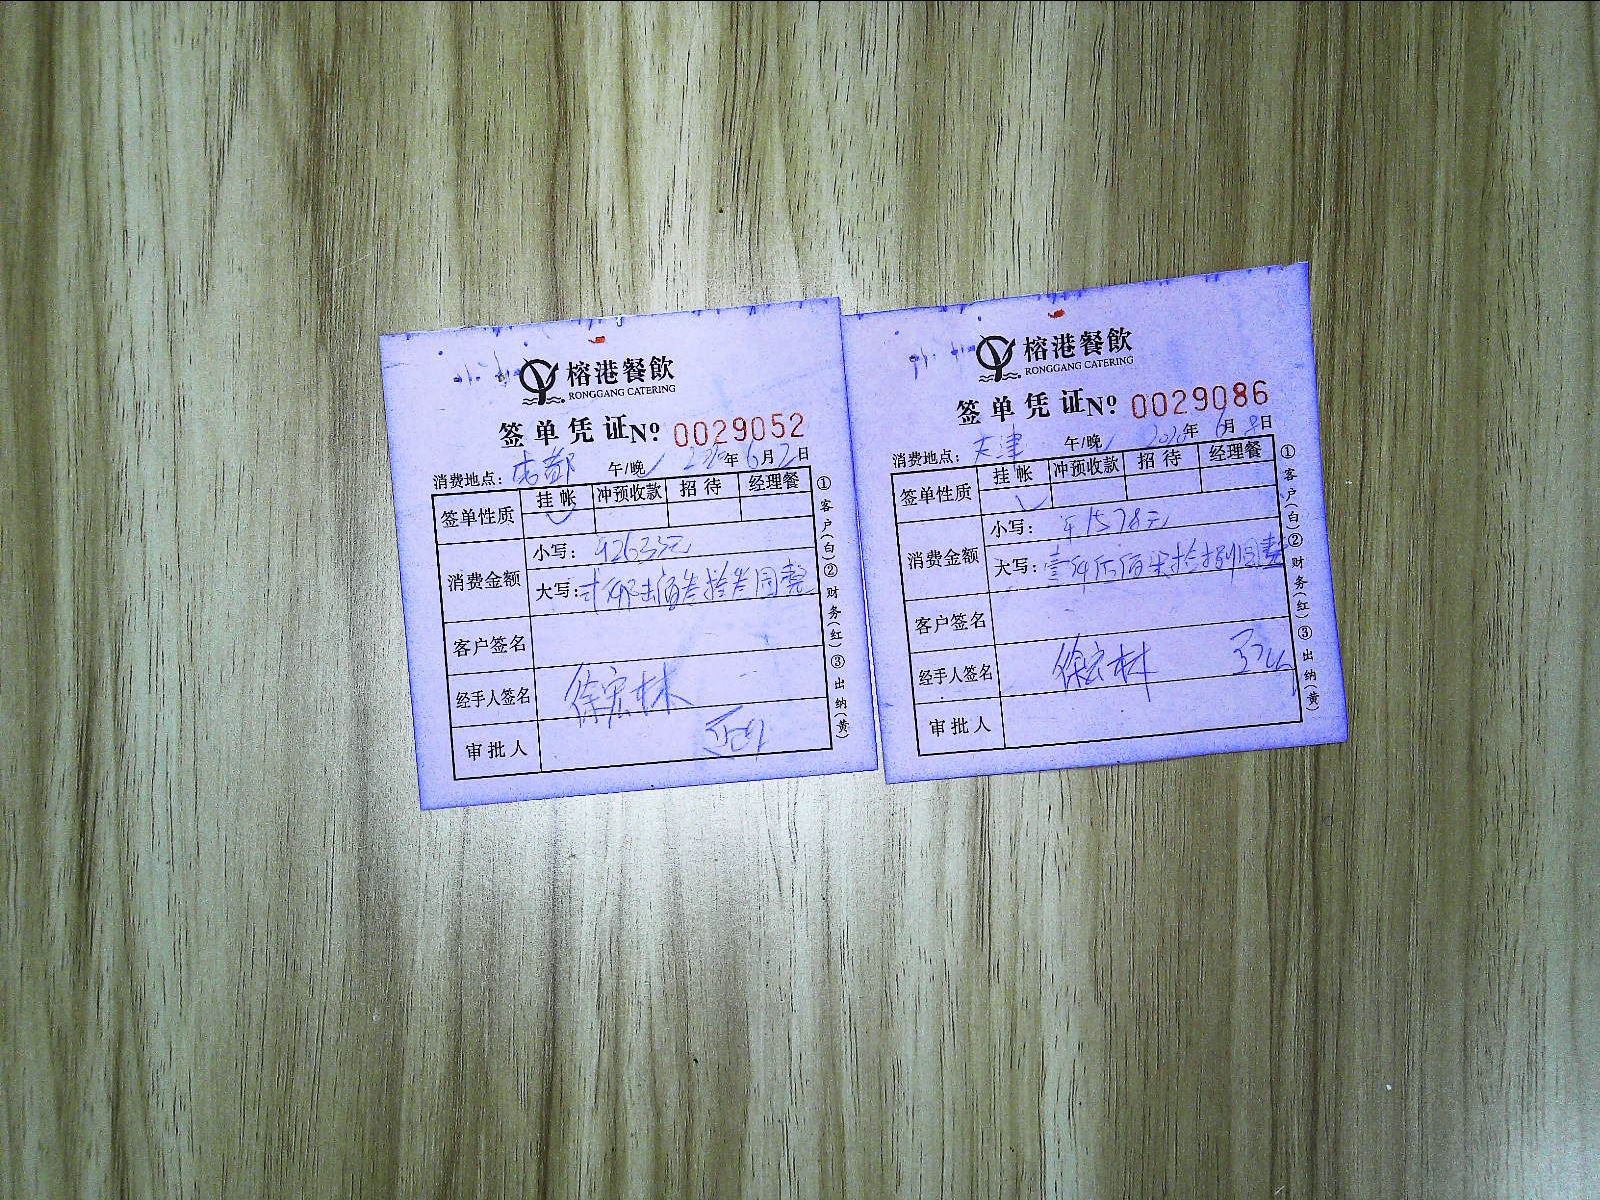 榕港餐飲
RONGGANG CATERING
签单凭证 Nº 0029052
消费地点：成都 午/晚 2020年6月2日
签单性质 挂帐 冲预收款 招待 经理餐
消费金额
小写：¥2633元
大写：贰仟陆佰叁拾叁圆整
客户签名
经手人签名 徐宏林
审批人
①客户(白)②财务(红)③出纳(黄)
榕港餐飲
RONGGANG CATERING
签单凭证 Nº 0029086
消费地点：天津 午/晚 2020年6月8日
签单性质 挂帐 冲预收款 招待 经理餐
消费金额
小写：¥1578元
大写：壹仟伍佰柒拾捌圆整
客户签名
经手人签名 徐宏林
审批人
①客户(白)②财务(红)③出纳(黄)